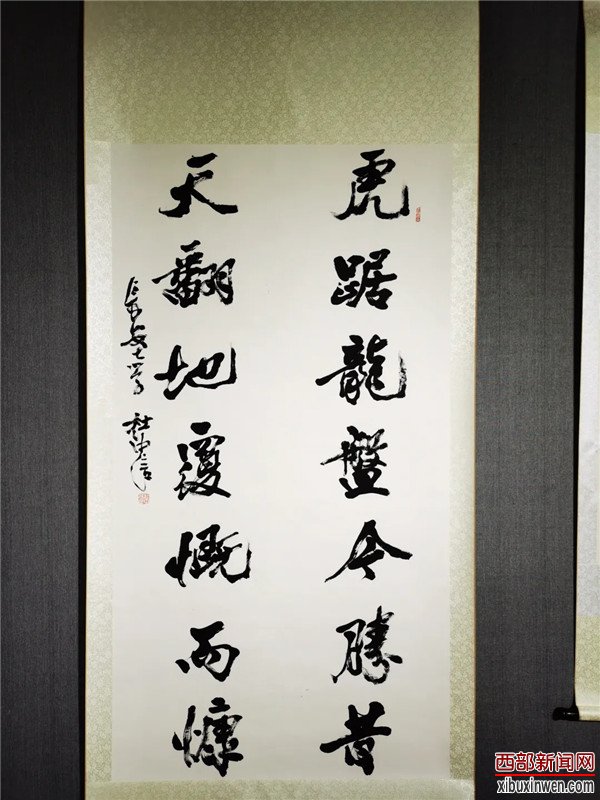 虎踞龍盤今勝昔
天翻地覆慨而慷
西部新闻网
xibuxinwen.com